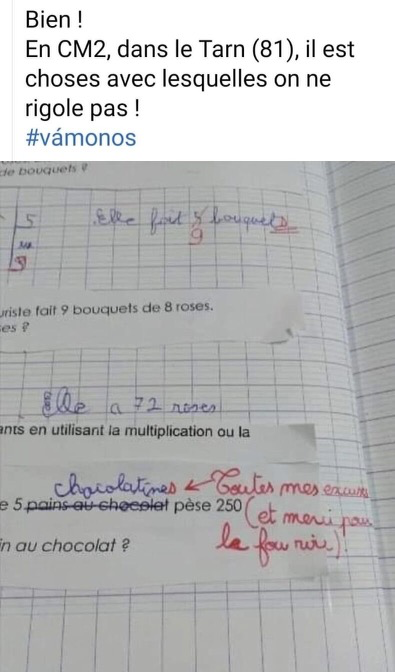 Bien !
En CM2, dans le Tarn (81), il est
choses avec lesquelles on ne
rigole pas !
#vámonos
de bouquets ?
5
Elle fait 5 bouquets
9
9
uriste fait 9 bouquets de 8 roses.
es ?
Elle a 72 roses
ants en utilisant la multiplication ou la
chocolatines ← Toutes mes excuses
e 5 pains au chocolat pèse 250
(et merci pour
in au chocolat ?
le fou rire)!